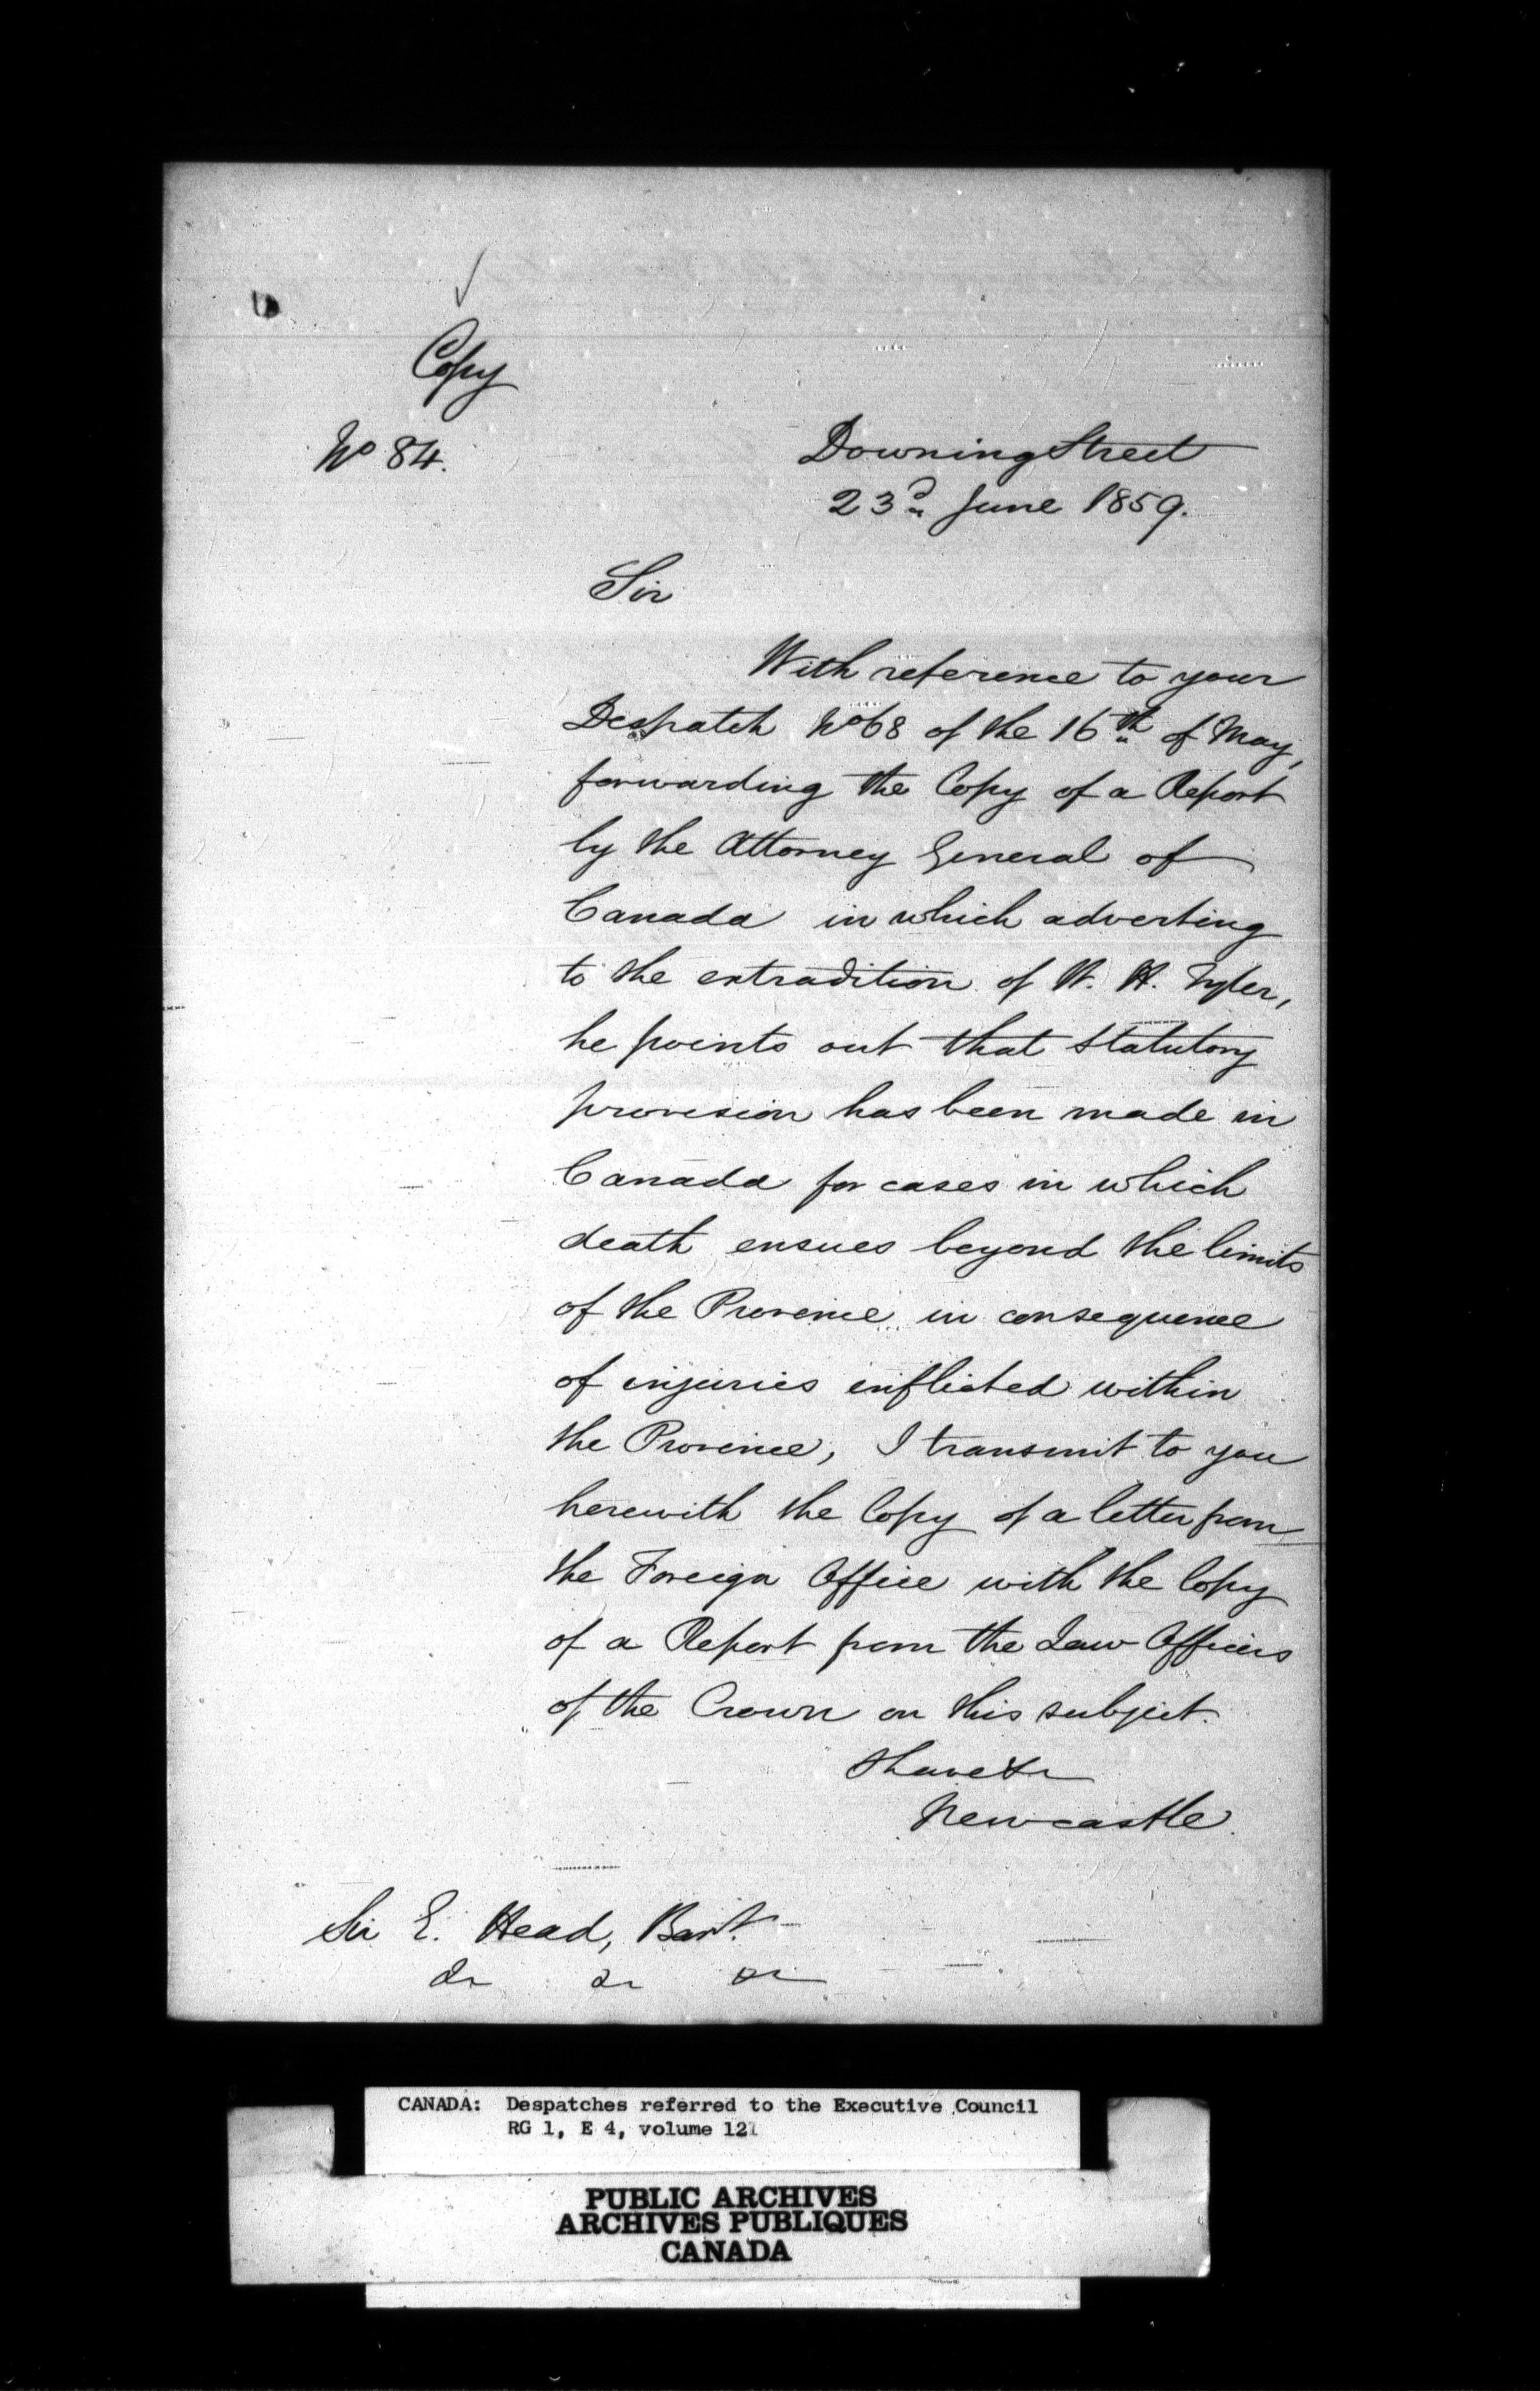 Copy
No 84.
Downing Street
23d June 1859.
Sir
With reference to your
Despatch No 68 of the 16th of May,
forwarding the Copy of a Report
by the Attorney General of
Canada in which adverting
to the extradition of W. H. Tyler,
he points out that statutory
provision has been made in
Canada for cases in which
death ensues beyond the limits
of the Province in consequence
of injuries inflicted within
the Province, I transmit to you
herewith the Copy of a letter from
the Foreign Office with the Copy
of a Report from the Law Officers
of the Crown on this subject.
I have &c
Newcastle.
Sir E. Head, Bart.
&c &c &c
CANADA: Despatches referred to the Executive Council
RG 1, E 4, volume 121
PUBLIC ARCHIVES
ARCHIVES PUBLIQUES
CANADA